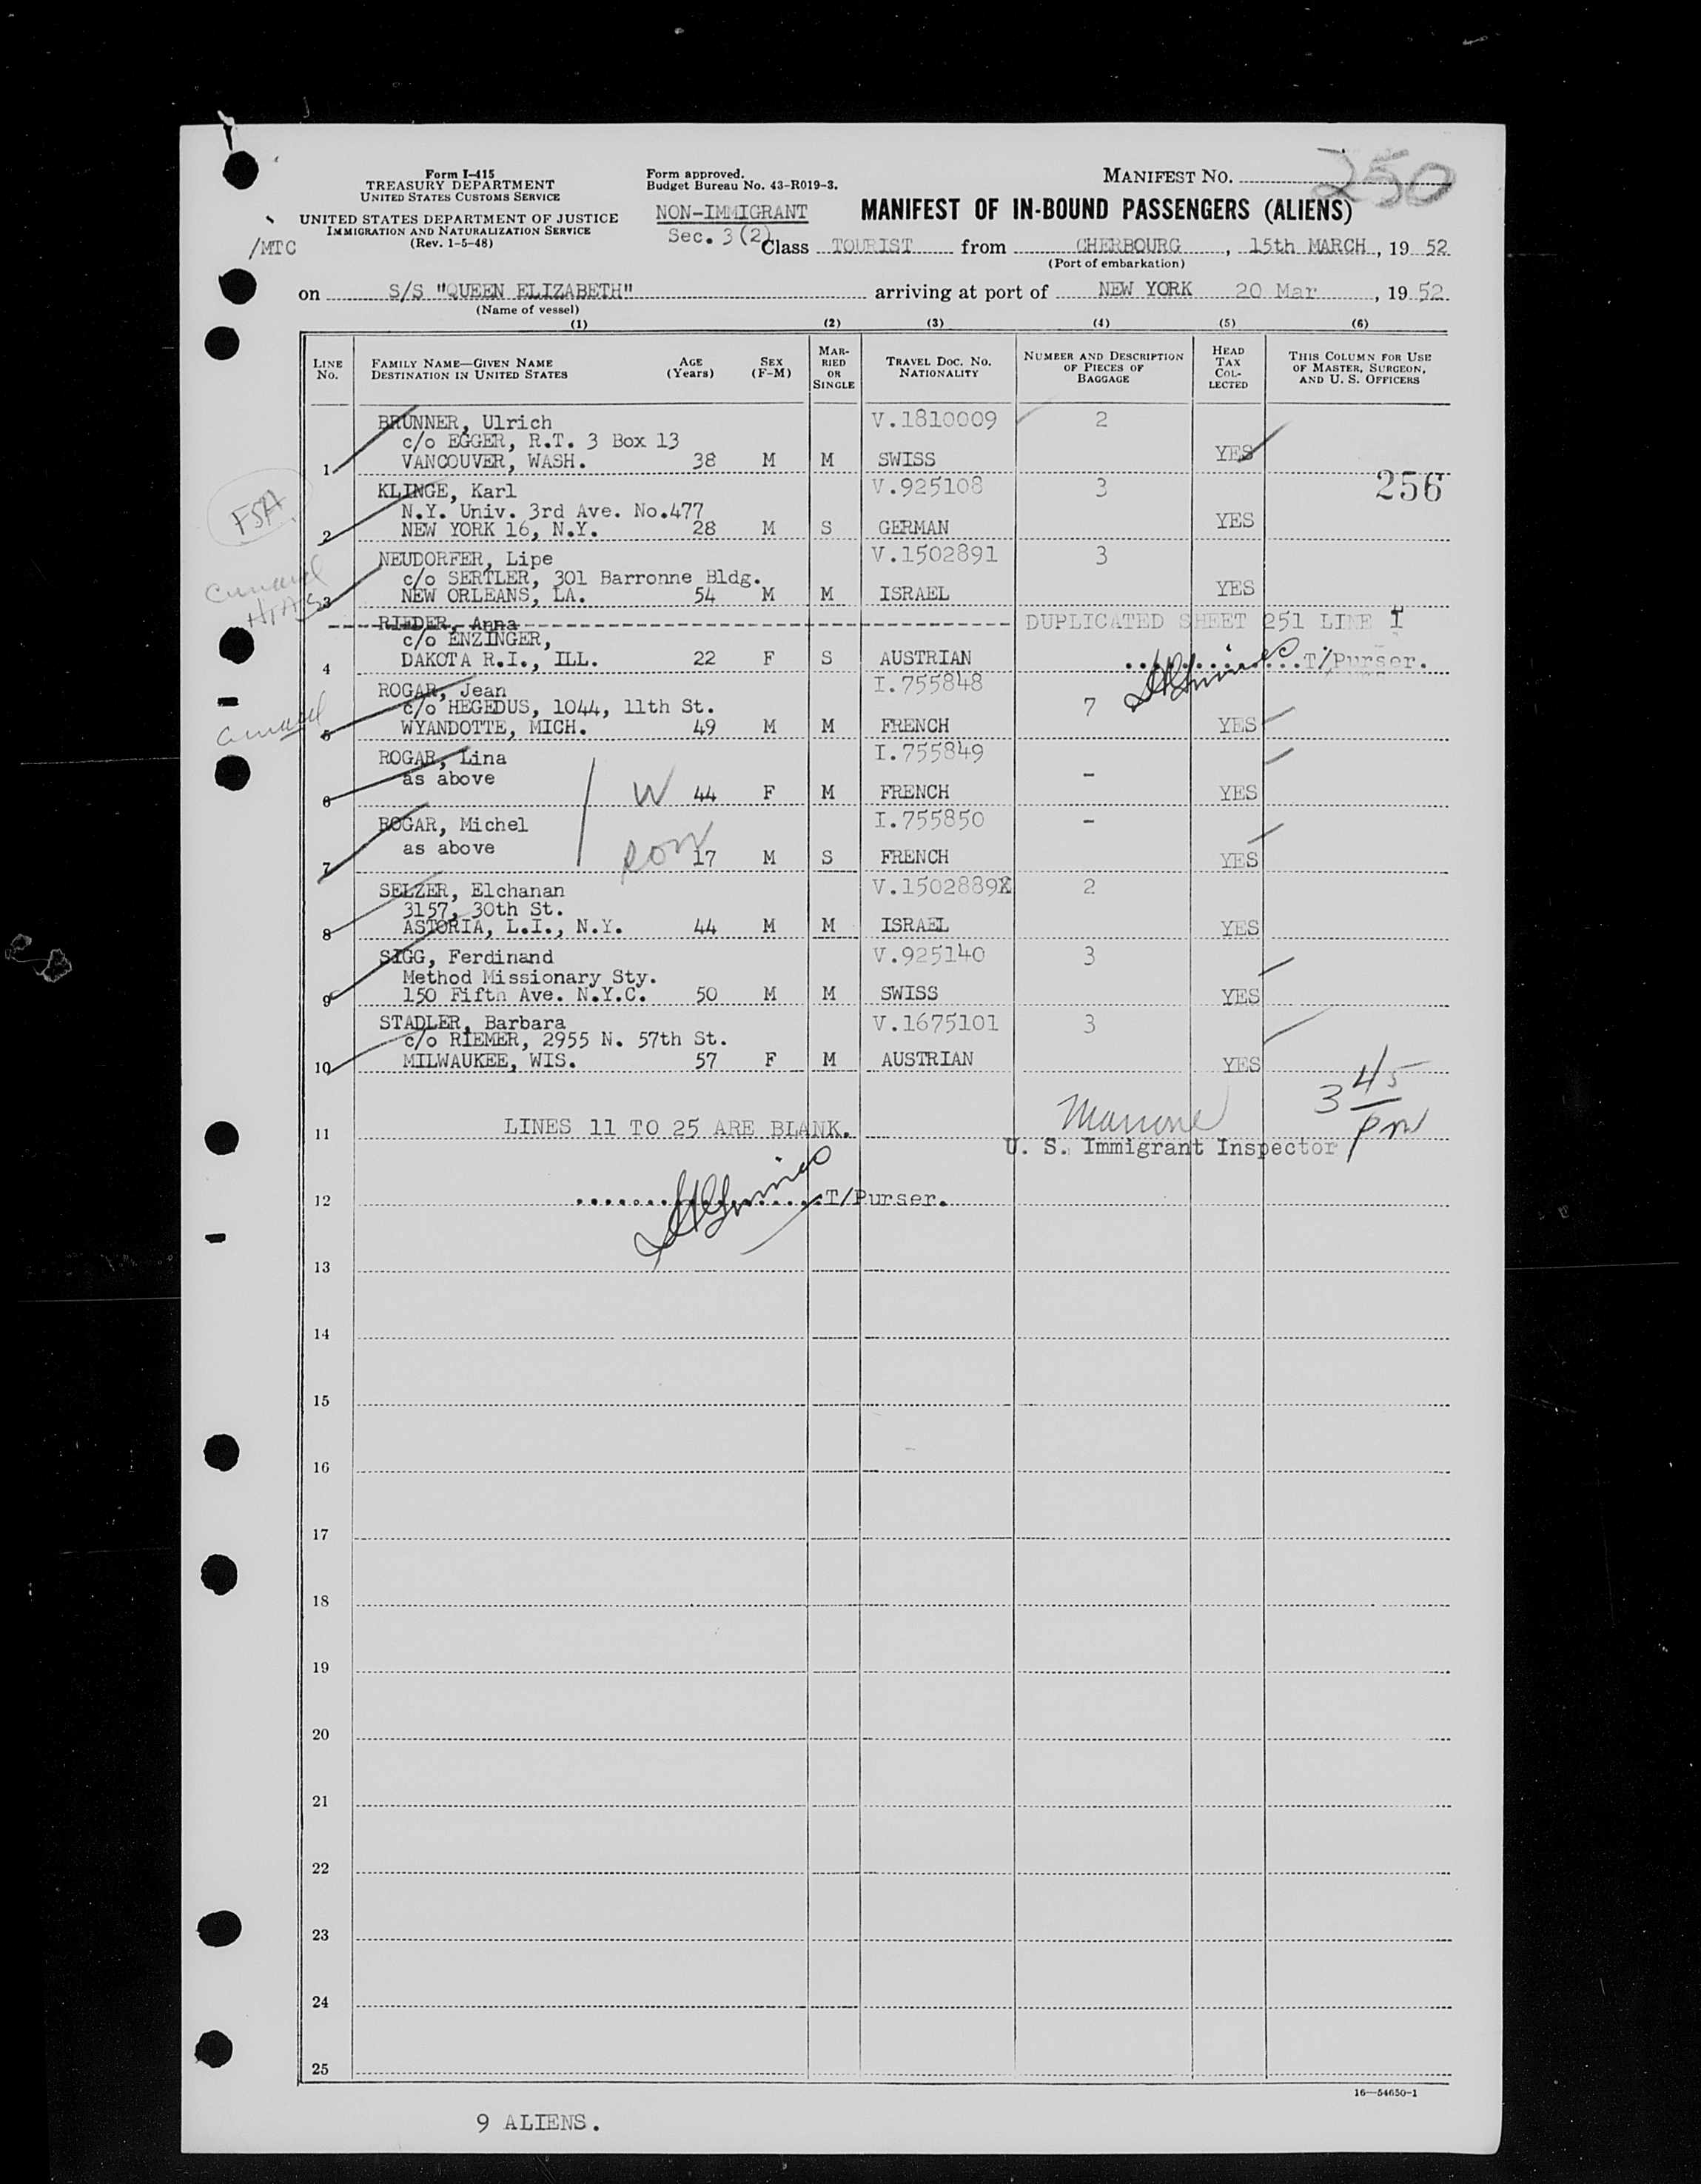 Form I-415
TREASURY DEPARTMENT
UNITED STATES CUSTOMS SERVICE
UNITED STATES DEPARTMENT OF JUSTICE
IMMIGRATION AND NATURALIZATION SERVICE
(Rev. 1-5-48)
/MTC
Form approved.
Budget Bureau No. 43-R019-3.
MANIFEST NO. 250
NON-IMMIGRANT
Sec. 3(2)
MANIFEST OF IN-BOUND PASSENGERS (ALIENS)
Class TOURIST from CHERBOURG, 15th MARCH, 19 52
(Port of embarkation)
on S/S "QUEEN ELIZABETH" arriving at port of NEW YORK 20 Mar, 19 52
(Name of vessel)
(1) (2) (3) (4) (5) (6)
LINE No. FAMILY NAME—GIVEN NAME DESTINATION IN UNITED STATES AGE (Years) SEX (F-M) MARRIED OR SINGLE TRAVEL DOC. NO. NATIONALITY NUMBER AND DESCRIPTION OF PIECES OF BAGGAGE HEAD TAX COLLECTED THIS COLUMN FOR USE OF MASTER, SURGEON, AND U. S. OFFICERS
BRUNNER, Ulrich V.1810009 2
c/o EGGER, R.T. 3 Box 13
1 VANCOUVER, WASH. 38 M M SWISS YES
256
KLINGE, Karl V.925108 3
FSA
N.Y. Univ. 3rd Ave. No.477
2 NEW YORK 16, N.Y. 28 M S GERMAN YES
NEUDORFER, Lipe V.1502891 3
Cunard
HIAS
c/o SERTLER, 301 Barronne Bldg.
3 NEW ORLEANS, LA. 54 M M ISRAEL YES
RIEDER, Anna DUPLICATED SHEET 251 LINE 1
c/o ENZINGER,
4 DAKOTA R.I., ILL. 22 F S AUSTRIAN T/Purser.
ROGAR, Jean I.755848 7
Cunard
c/o HEGEDUS, 1044, 11th St.
5 WYANDOTTE, MICH. 49 M M FRENCH YES
ROGAR, Lina I.755849 -
as above
6 W 44 F M FRENCH YES
ROGAR, Michel I.755850 -
as above
7 17 M S FRENCH YES
SELZER, Elchanan V.1502889X 2
3157, 30th St.
8 ASTORIA, L.I., N.Y. 44 M M ISRAEL YES
SIGG, Ferdinand V.925140 3
Method Missionary Sty.
9 150 Fifth Ave. N.Y.C. 50 M M SWISS YES
STADLER, Barbara V.1675101 3
c/o RIEMER, 2955 N. 57th St.
10 MILWAUKEE, WIS. 57 F M AUSTRIAN YES
3 45 pm
11 LINES 11 TO 25 ARE BLANK.
U. S. Immigrant Inspector
12 T/Purser.
13
14
15
16
17
18
19
20
21
22
23
24
25
16—54650-1
9 ALIENS.